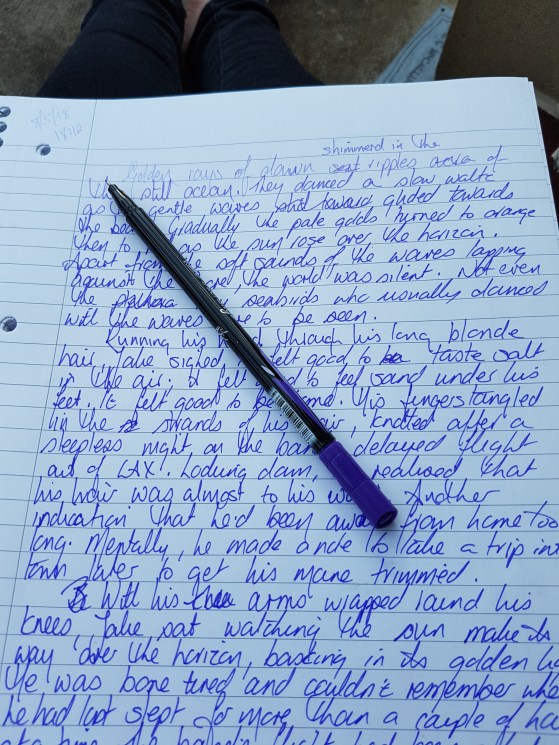 shimmerd in the
Golden rays of dawn sent ripples across of
the still ocean. They danced a slow waltz
as gentle waves glided towards
the gradually the pale golds turned to orange
then to as the sun rose over the horizon.
Apart from the soft sounds of the waves lapping
against the the world was silent. Not even
the seabirds who usually danced
with the waves to be seen.
Running his through his long blonde
hair, Jake sighed. felt good to be taste salt
in the air; it felt to feel sand under his
feet. It felt good to be His fingers tangled
in the strands of his knotted after a
sleepless night on the delayed flight
out of LAX. Looking down, realised that
his hair was almost to his Another
indication that he'd been away from home too
long. Mentally, he made a note to take a trip into
town later to get his mane trimmed.
With his arms wrapped round his
knees, Jake sat watching the sun make its
way over the horizon, basking in its golden
He was bone tired and couldn't remember
he had last slept for more than a couple of